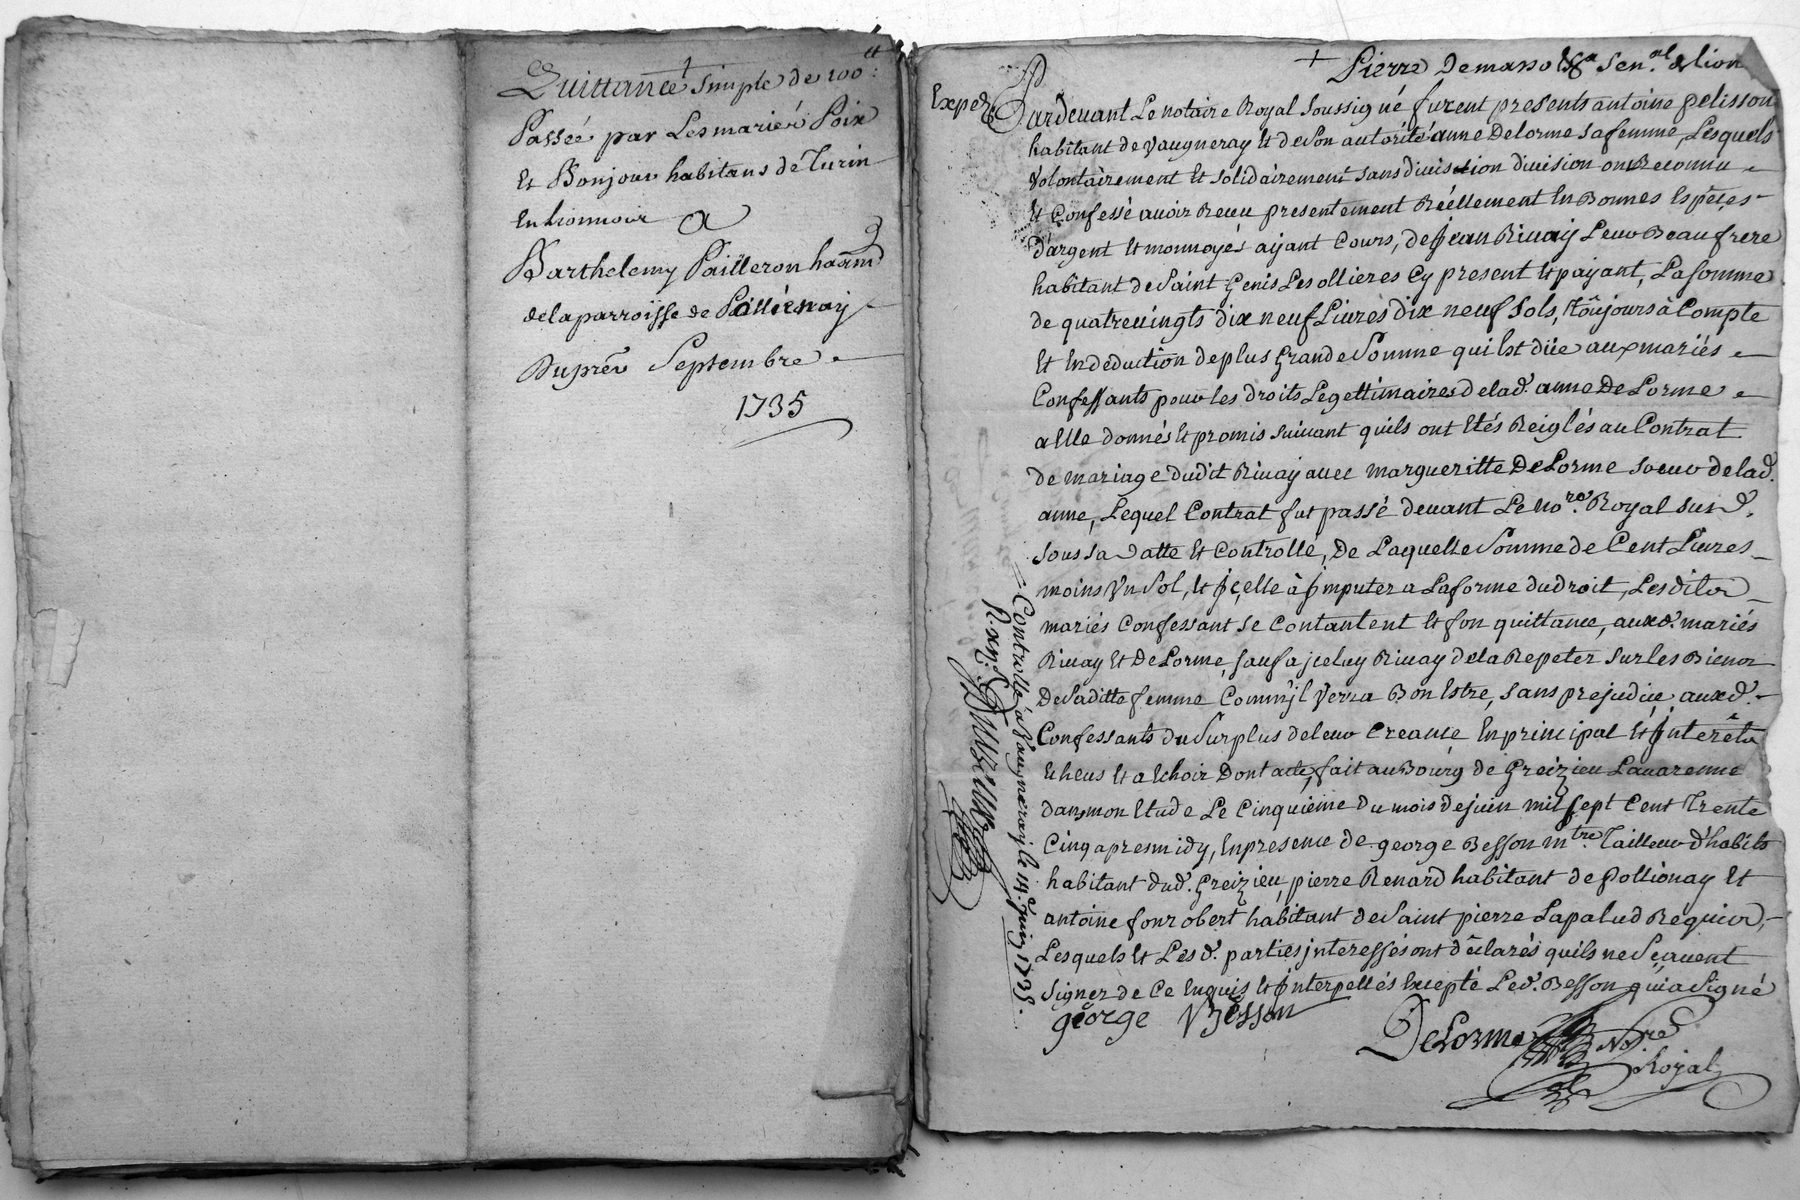 Quittance simple de 100tt:
Passée par Les mariés Poix
Et Bonjour habitans de Turin
En Lionnois A
Barthelemy Pailleron habitnd
de la parroisse de Pollienay
Du prer Septembre
1735
Pierre Demasso Sen.al de Lion
Exped.
Pardevant Le notaire Royal soussigné furent presents antoine pelisson
habitant de vaugneray Et de son autorité anne DeLorme sa femme, Lesquels
Volontairement Et solidairement sans division division ont Reconnu
Et Confessé avoir Receu presentement Réellement En Bonnes Espeçes
d'argent Et monnoyés ayant Cours, de jean Rivay Leur Beaufrere
habitant de Saint Genis Les ollieres Cy present Et payant, La somme
de quatrevingts dix neuf Livres dix neuf sols, Toûjours à Compte
Et En deduction de plus Grande Somme qui Est düe aux mariés
Confessants pour les droits Legettimaires de lad. anne DeLorme
a Elle donnés Et promis suivant quils ont Etés Reiglés au Contrat
de mariage dudit Rivay avec margueritte DeLorme soeur de lad.
anne, Lequel Contrat fut passé devant Le no.re Royal susd.
sous sa Datte Et Controlle, De Laquelle Somme de Cent Livres
moins Vn Sol, Et jçelle à jmputer a La forme du droit, Les dits
mariés Confessant se Contantent Et fon quittance, auxd. mariés
Rivay Et DeLorme, sauf a jceluy Rivay de la Repeter sur les Biens
De saditte femme Comm'jl Verra Bon Estre, sans prejudice auxd.
Confessants du Surplus de leur Creance En principal Et jnterêts
Echeus Et a Echoir Dont acte, fait au Bourg de Greizieu Lavarenne
dans mon Etude Le Cinquieme du mois de juin mil sept Cent Trente
Cinq apres midy, En presence de george Besson m.tre Tailleur d'habits
habitant dud. Greizieu, pierre Renard habitant de Pollionay Et
antoine fonrobert habitant de Saint pierre Lapalud Requis,
Lesquels Et Les d. parties jnteressés ont déclarés quils ne Sçavent
Signer de Ce Enquis Et jnterpellés Excepté Led. Besson qui a Signé
george Besson
DeLorme No.re
Royal
Controllé à Vaugneray le 14e juin 1735.
R. xij s.